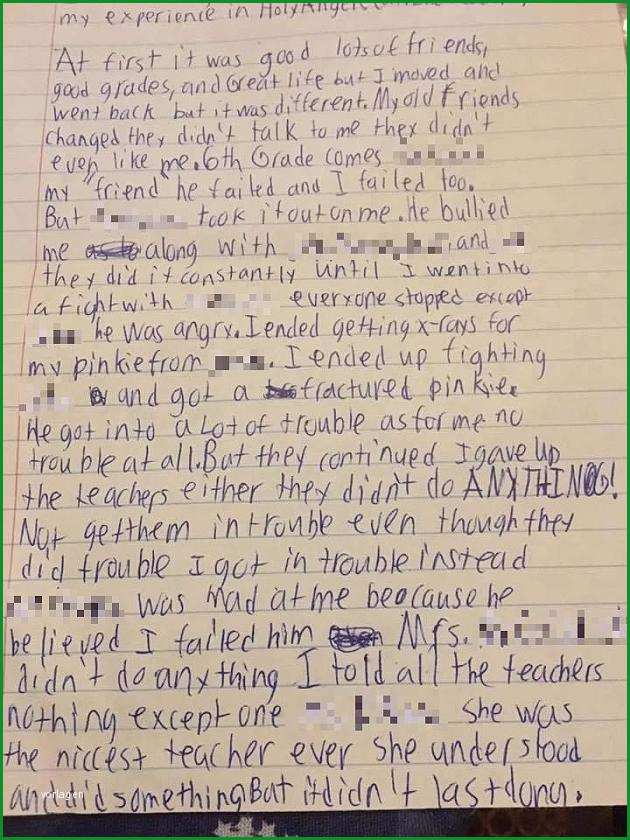 my experience in Holy Angels
At first it was good lots of friends,
good grades, and Great life but I moved and
went back but it was different. My old friends
changed they didn't talk to me they didn't
even like me. 6th Grade comes
my "friend" he failed and I failed too.
But took it out on me. He bullied
me along with and
they did it constantly until I went into
a fight with everyone stopped except
he was angry. I ended getting x-rays for
my pinkie from . I ended up fighting
and got a fractured pinkie.
He got into a Lot of trouble as for me no
trouble at all. But they continued I gave up
the teachers either they didn't do ANYTHING!
Not get them in trouble even though they
did trouble I got in trouble instead
was mad at me beocause he
believed I failed him Mrs.
didn't do anything I told all the teachers
nothing except one she was
the niccest teacher ever she understood
and did something But it didn't last long.
vorlagen